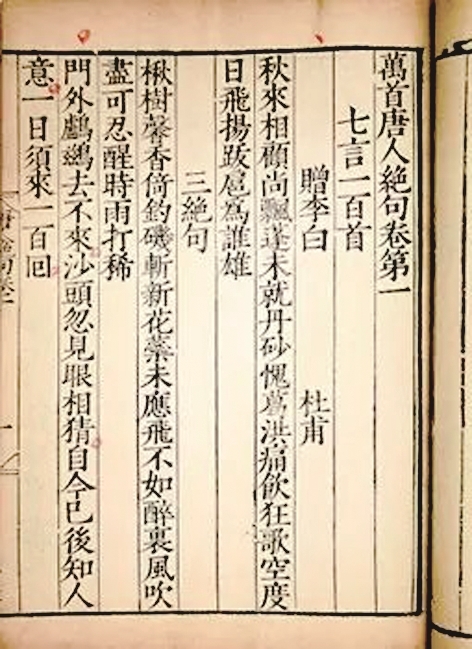 萬首唐人絶句卷第一
七言一百首
贈李白 杜甫
秋來相顧尚飄蓬未就丹砂愧葛洪痛飲狂歌空度
日飛揚跋扈爲誰雄
三絶句
楸樹馨香倚釣磯斬新花蘂未應飛不如醉裏風吹
盡可忍醒時雨打稀
門外鸕鷀去不來沙頭忽見眼相猜自今已後知人
意一日須來一百回